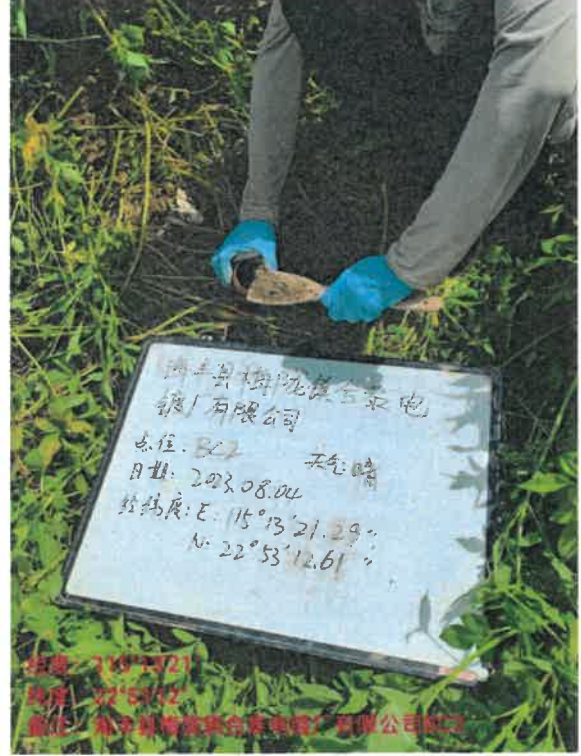 海丰县梅陇镇合泰电
镀厂有限公司
点位: BC2 天气: 晴
日期: 2023.08.04
经纬度: E: 115°13′21.29″
N: 22°53′12.61″
经度: 115°13'21"
纬度: 22°53'12"
备注: 海丰县梅陇镇合泰电镀厂有限公司BC2